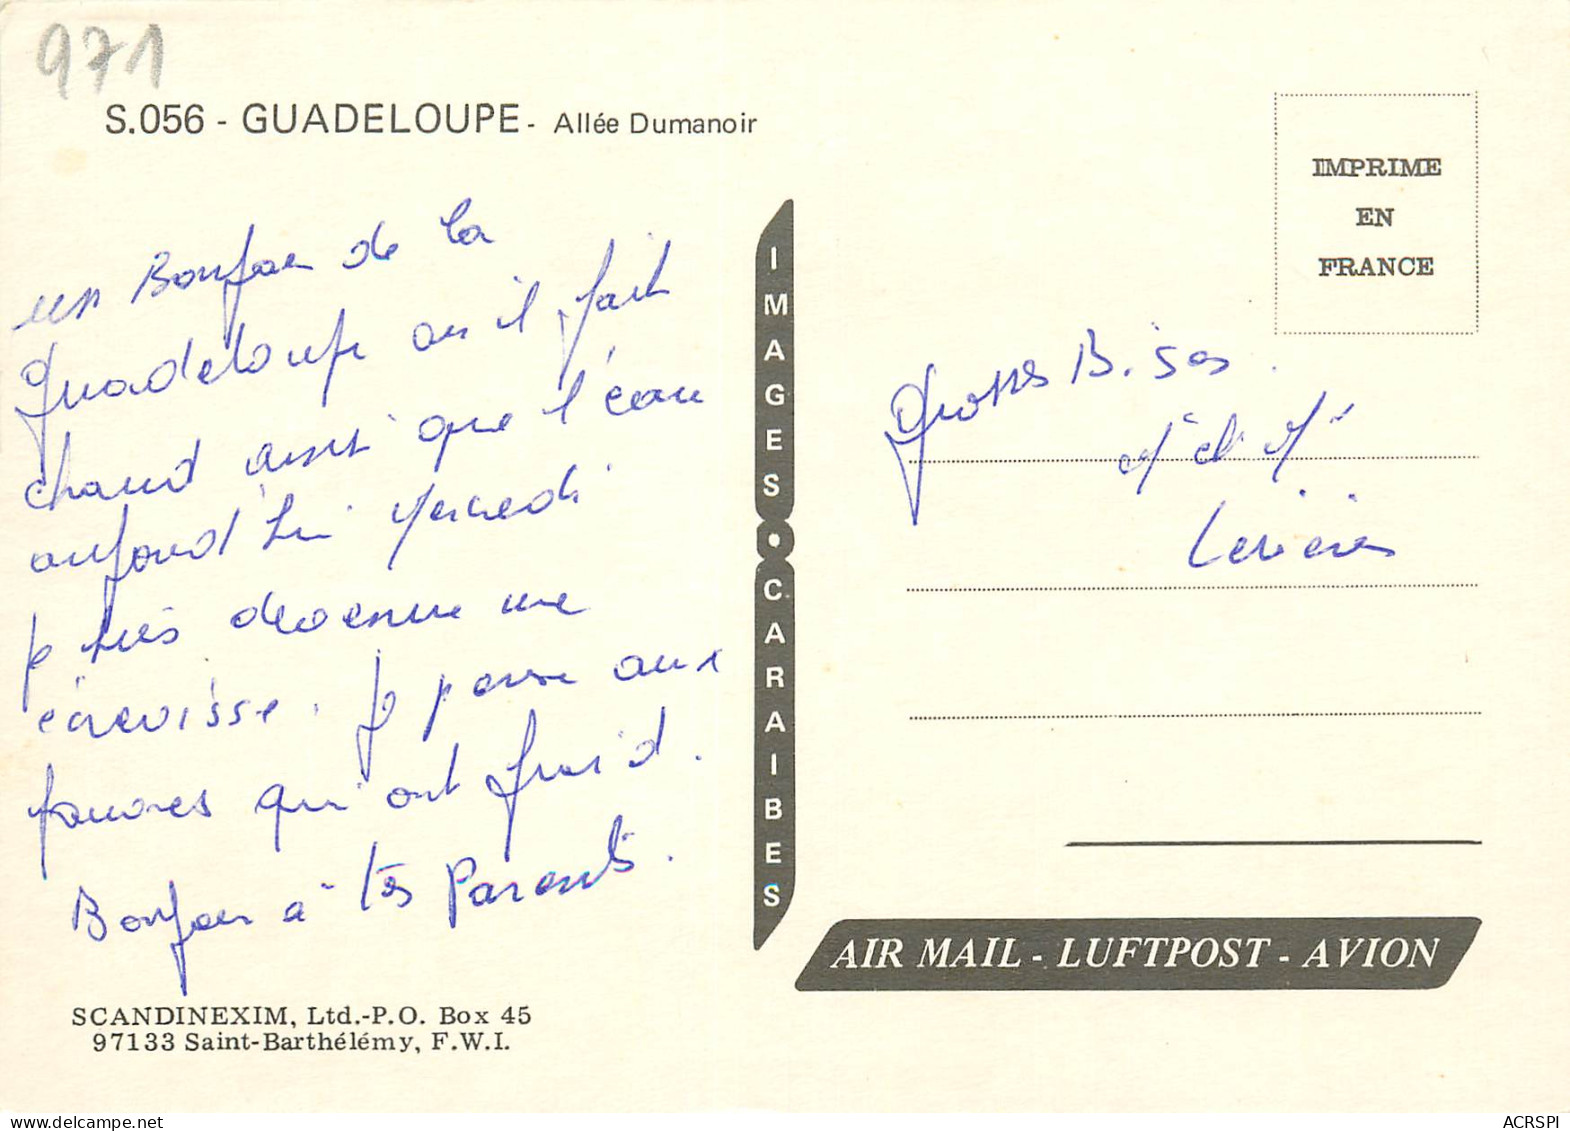 971
S.056 - GUADELOUPE - Allée Dumanoir
IMPRIME
EN
FRANCE
un Bonjour de la
Guadeloupe ou il fait
chaud ainsi que l'eau
aujourd'hui Mercredi
je suis devenue une
écrevisse. Je pense aux
pauvres qui ont froid.
Bonjour à tes Parents.
IMAGES CARAIBES
Grosses Bises.
et
SCANDINEXIM, Ltd.-P.O. Box 45
97133 Saint-Barthélémy, F.W.I.
AIR MAIL - LUFTPOST - AVION
ACRSPI